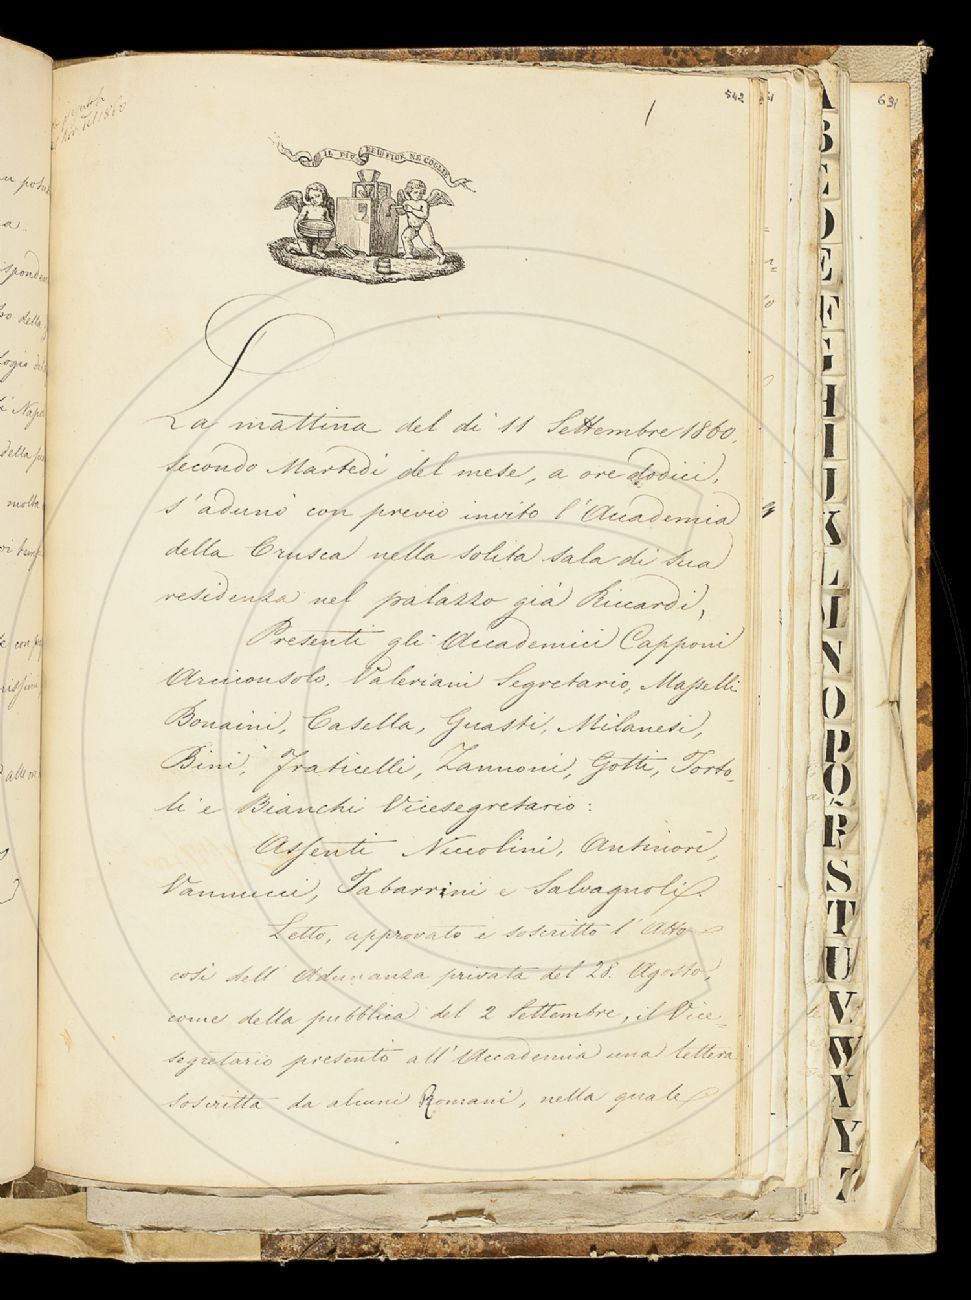 542
1
691
IL PIÙ BEL FIOR NE COGLIE
La mattina del dì 11 Settembre 1860,
secondo Martedì del mese, a ore dodici,
s'adunò con previo invito l'Accademia
della Crusca nella solita sala di sua
residenza nel palazzo già Riccardi,
Presenti gli Accademici Capponi
Arciconsolo, Valeriani Segretario, Masselli
Bonaini, Casella, Guasti, Milanesi,
Bini, Fraticelli, Zannoni, Gotti, Torto-
li e Bianchi Vicesegretario:
Assenti Niccolini, Antinori,
Vannucci, Tabarrini e Salvagnoli.
Letto, approvato e soscritto l'Atto
così dell'Adunanza privata del 28 Agosto,
come della pubblica del 2 Settembre, il Vice-
segretario presentò all'Accademia una lettera
soscritta da alcuni Romani, nella quale
A
B
C
D
E
F
G
H
I
J
K
L
M
N
O
P
Q
R
S
T
U
V
W
X
Y
Z